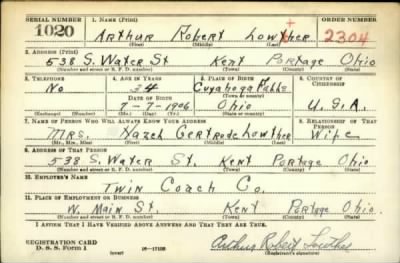 SERIAL NUMBER 1. NAME (Print) ORDER NUMBER
1020 Arthur Robert Lowther 2304
(First) (Middle) (Last)
2. ADDRESS (Print)
538 S. Water St Kent Portage Ohio
(Number and street or R. F. D. number) (Town) (County) (State)
3. TELEPHONE 4. AGE IN YEARS 5. PLACE OF BIRTH 6. COUNTRY OF CITIZENSHIP
No 34 Cuyahoga Falls
DATE OF BIRTH (Town or county)
7-7-1906 Ohio U.S.A.
(Exchange) (Number) (Mo.) (Day) (Yr.) (State or country)
7. NAME OF PERSON WHO WILL ALWAYS KNOW YOUR ADDRESS 8. RELATIONSHIP OF THAT PERSON
Mrs. Hazel Gertrude Lowther Wife
(Mr., Mrs., Miss) (First) (Middle) (Last)
9. ADDRESS OF THAT PERSON
538 S. Water St. Kent Portage Ohio
(Number and street or R. F. D. number) (Town) (County) (State)
10. EMPLOYER'S NAME
Twin Coach Co.
11. PLACE OF EMPLOYMENT OR BUSINESS
W. Main St. Kent Portage Ohio.
(Number and street or R. F. D. number) (Town) (County) (State)
I AFFIRM THAT I HAVE VERIFIED ABOVE ANSWERS AND THAT THEY ARE TRUE.
REGISTRATION CARD
D. S. S. Form 1 Arthur Robert Lowther
(Registrant's signature)